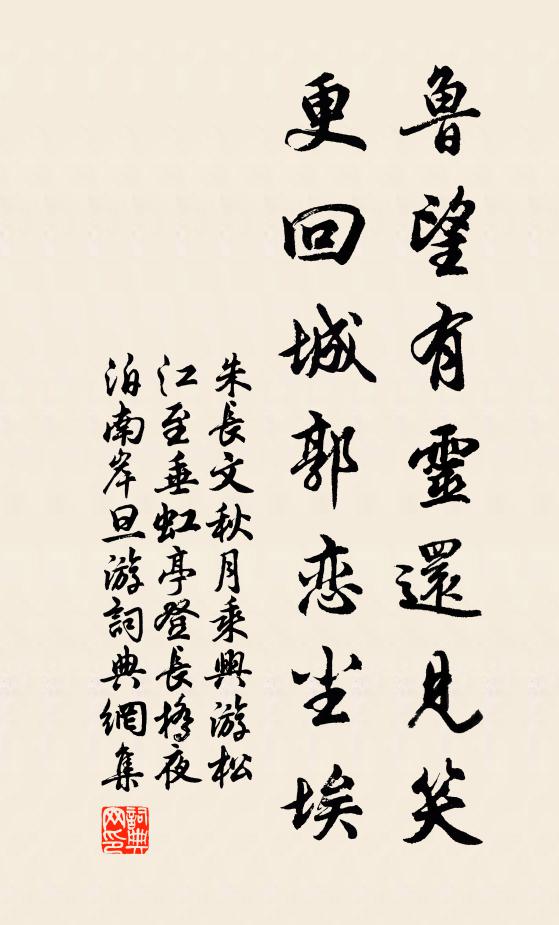 魯望有靈還見笑
更回城郭恋尘埃
朱長文秋月乘興游松
江至垂虹亭登長橋夜
泊南岸旦游詞典網集
詞典
网印